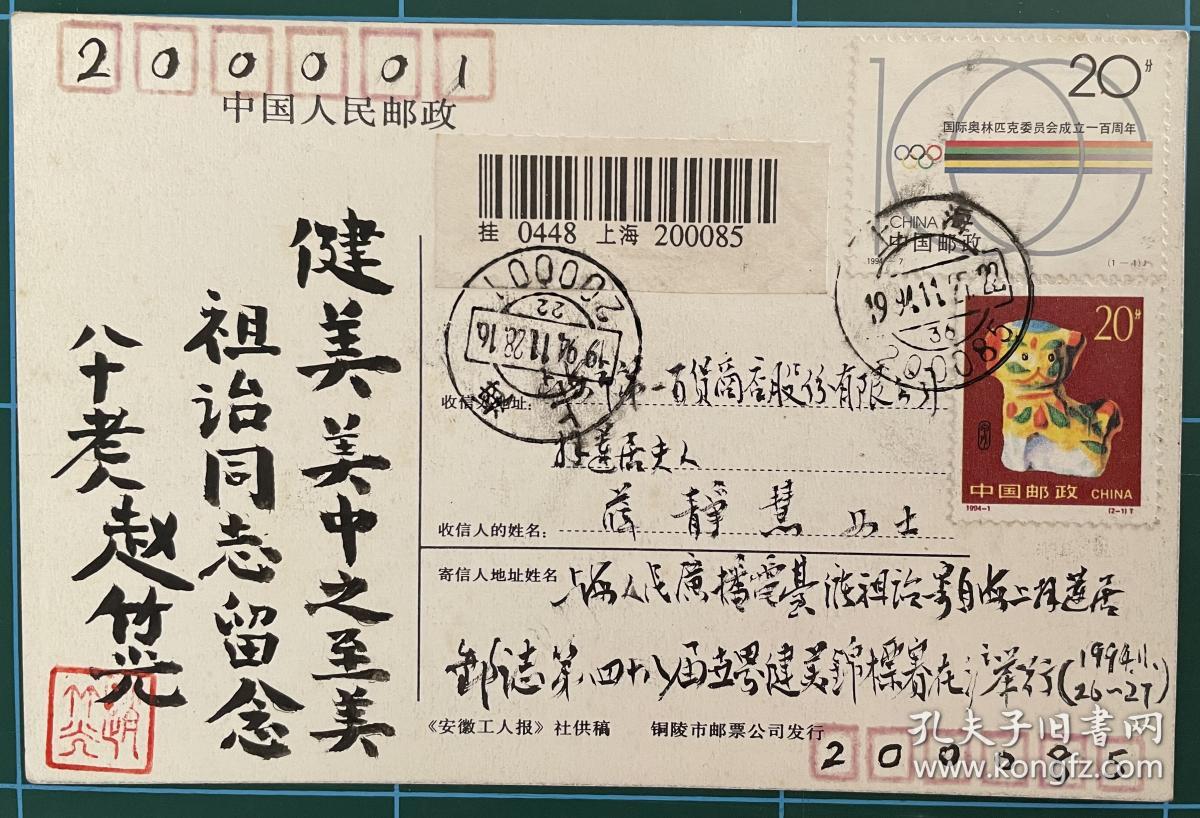 200001
中国人民邮政
20分
国际奥林匹克委员会成立一百周年
CHINA
中国邮政
1994-7
(1-4)J
挂 0448 上海 200085
上海
1994.11.27.22
36
200085
200001
22
1994.11.28.16
上海
20分
中国邮政 CHINA
1994-1
(2-1)T
健美美中之至美
祖诒同志留念
八十老人赵竹光
收信人地址:
第一百货商店股份有限公司
莲居夫人
收信人的姓名:
薛静慧 女士
寄信人地址姓名
上海人民廣播電臺 祖诒寄自海上拜蓮居
邮志第四十八届世界健美錦標賽在滬舉行(1994.11.26~27)
《安徽工人报》社供稿 铜陵市邮票公司发行
200085
孔夫子旧书网
www.kongfz.com